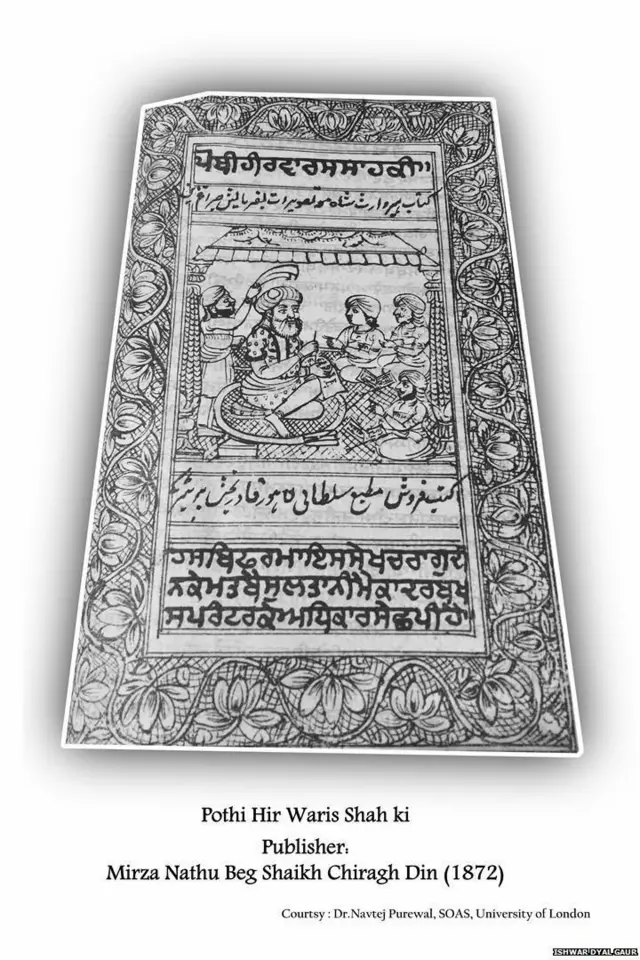 ਪੋਥੀਹੀਰਵਾਰਸਸਾਹਕੀ॥
کتاب ہیر وارث شاہ معہ تصویرات بفرمایش چراغ دین
کتب فروش مطبع سلطانی لاہور قادر بخش پرنٹر
ਹਸਬਿਫੁਰਮਾਇਸਸੇਖਚਰਾਗੁਦੀ
ਨਕੇਮਤਬੈਸੁਲਤਾਨੀਮੈਕਾਦਰਬਖ
ਸਪਰੰਟਰਕੇਅਧਿਕਾਰਸੇਛਪੀਹੈ
Pothi Hir Waris Shah ki
Publisher:
Mirza Nathu Beg Shaikh Chiragh Din (1872)
Courtsy : Dr.Navtej Purewal, SOAS, University of London
ISHWAR DYAL GAUR